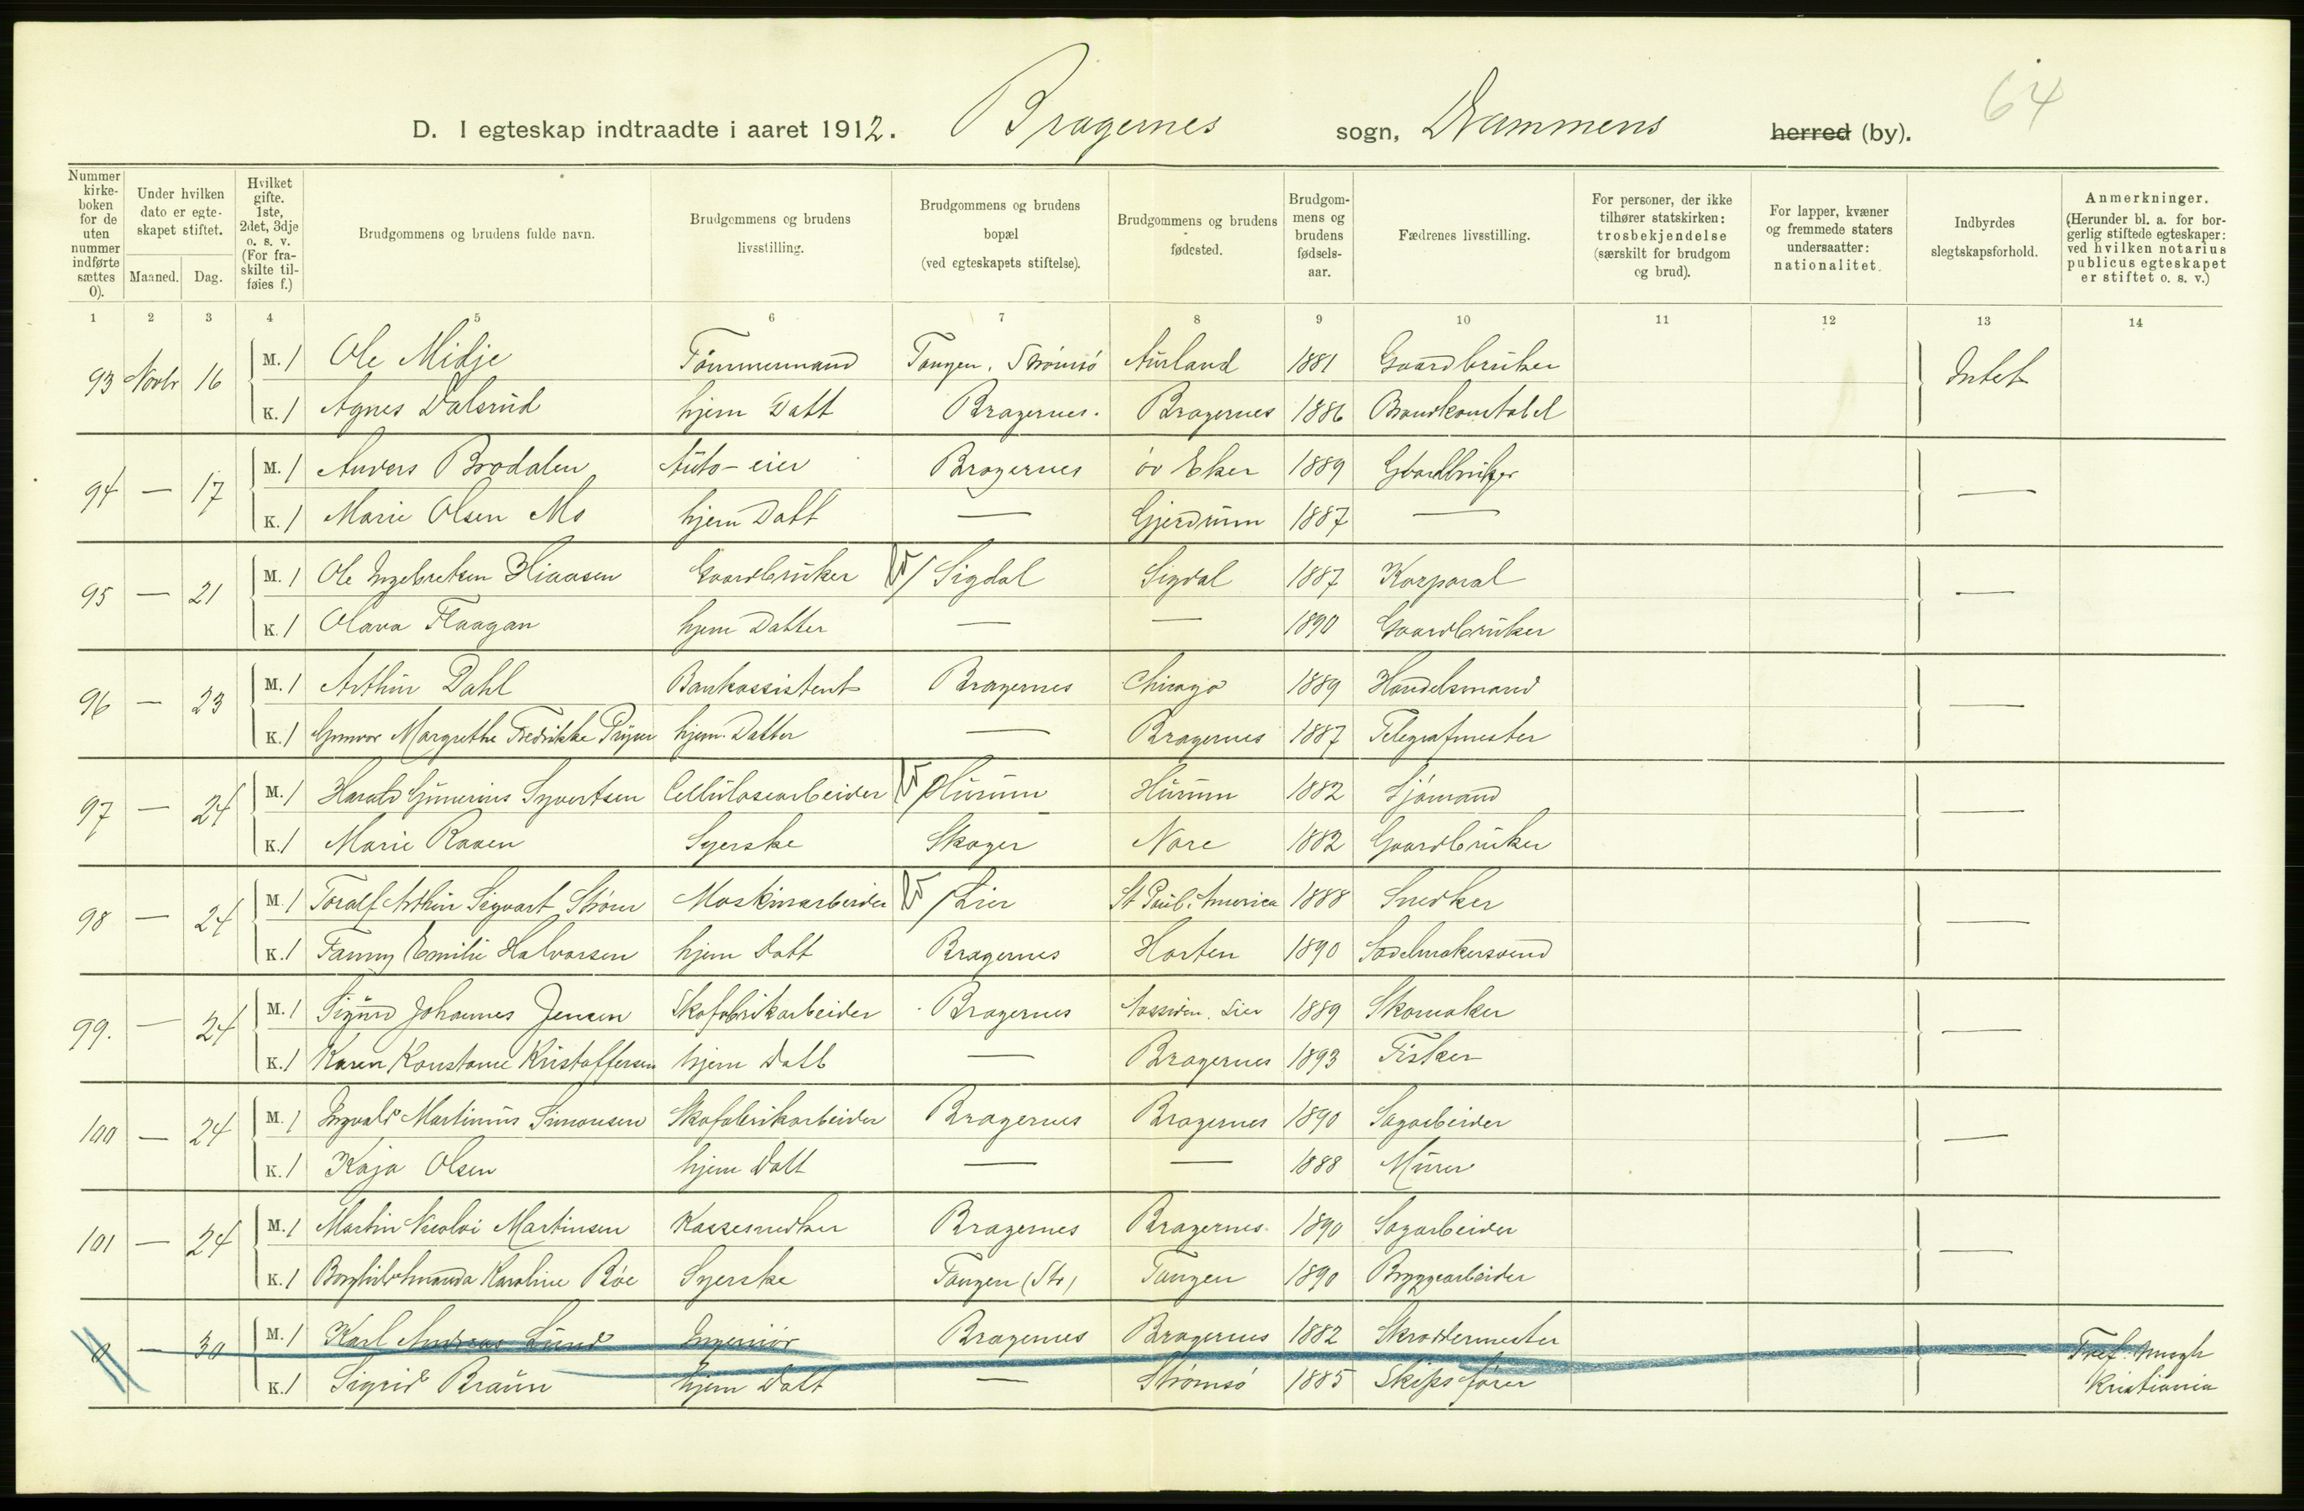 64
D. I egteskap indtraadte i aaret 1912. Bragernes sogn, Drammens herred (by).
Nummer kirke-boken for de uten nummer indførte sættes 0).
Under hvilken dato er egte-skapet stiftet.
Maaned. Dag.
Hvilket gifte. 1ste, 2det, 3dje o. s. v. (For fra-skilte til-føies f.)
Brudgommens og brudens fulde navn.
Brudgommens og brudens livsstilling.
Brudgommens og brudens bopæl (ved egteskapets stiftelse).
Brudgommens og brudens fødested.
Brudgom-mens og brudens fødsels-aar.
Fædrenes livsstilling.
For personer, der ikke tilhører statskirken: trosbekjendelse (særskilt for brudgom og brud).
For lapper, kvæner og fremmede staters undersaatter: nationalitet.
Indbyrdes slegtskapsforhold.
Anmerkninger. (Herunder bl. a. for bor-gerlig stiftede egteskaper: ved hvilken notarius publicus egteskapet er stiftet o. s. v.)
1 2 3 4 5 6 7 8 9 10 11 12 13 14
93 Novbr 16 M. 1 Ole Midje Tømmermand Tangen. Strømsö Aurland 1881 Gaardbruker Intet
K. 1 Agnes Dalsrud hjem Datt Bragernes. Bragernes 1886 Brandkonstabel
94 — 17 M. 1 Anders Brodalen Auto-eier Bragernes öv Eker 1889 Gaardbruker —
K. 1 Marie Olsen Mo hjem Datt — Gjerdrum 1887 —
95 — 21 M. 1 Ole Ingebretsen Hiaasen Gaardbruker Sigdal Sigdal 1887 Korporal —
K. 1 Olava Flaagan hjem Datter — — 1890 Gaardbruker
96 — 23 M. 1 Arthur Dahl Bankassistent Bragernes Chicago 1889 Handelsmand —
K. 1 Gunvor Margrethe Fredrikke hjem. Datter — Bragernes 1887 Telegrafmester
97 — 24 M. 1 Harald Gunerius Syvertsen Cellulosearbeider Hurum Hurum 1882 Sjömand —
K. 1 Marie Raaen Syerske Skoger Nore 1882 Gaardbruker
98 — 24 M. 1 Toralf Arthur Sigvart Maskinarbeider Lier St Paul. America 1888 Snedker —
K. 1 Fanny Emilie Halvorsen hjem Datt Bragernes Horten 1890 Sadelmakersvend
99. — 24 M. 1 Sigurd Johannes Jensen Skofabrikarbeider Bragernes Aassiden. Lier 1889 Skomaker —
K. 1 Karen Konstanse Kristoffersen hjem Datt — Bragernes 1893 Fisker
100 — 24 M. 1 Ingvald Martinius Simonsen Skofabrikarbeider Bragernes Bragernes 1890 Sagarbeider —
K. 1 Kaja Olsen hjem Datt — — 1888 Murer
101 — 24 M. 1 Martin Nicolai Martinsen Kassesnedker Bragernes Bragernes. 1890 Sagarbeider —
K. 1 Borghild Amanda Karoline Böe Syerske Tangen (Str) Tangen 1890 Bryggearbeider
0 — 30 M. 1 Karl Andreas Lund Ingeniör Bragernes Bragernes 1882 Skreddermester —
K. 1 Sigrid Braun hjem Datt — Strömsö 1885 Skipsförer Kristiania